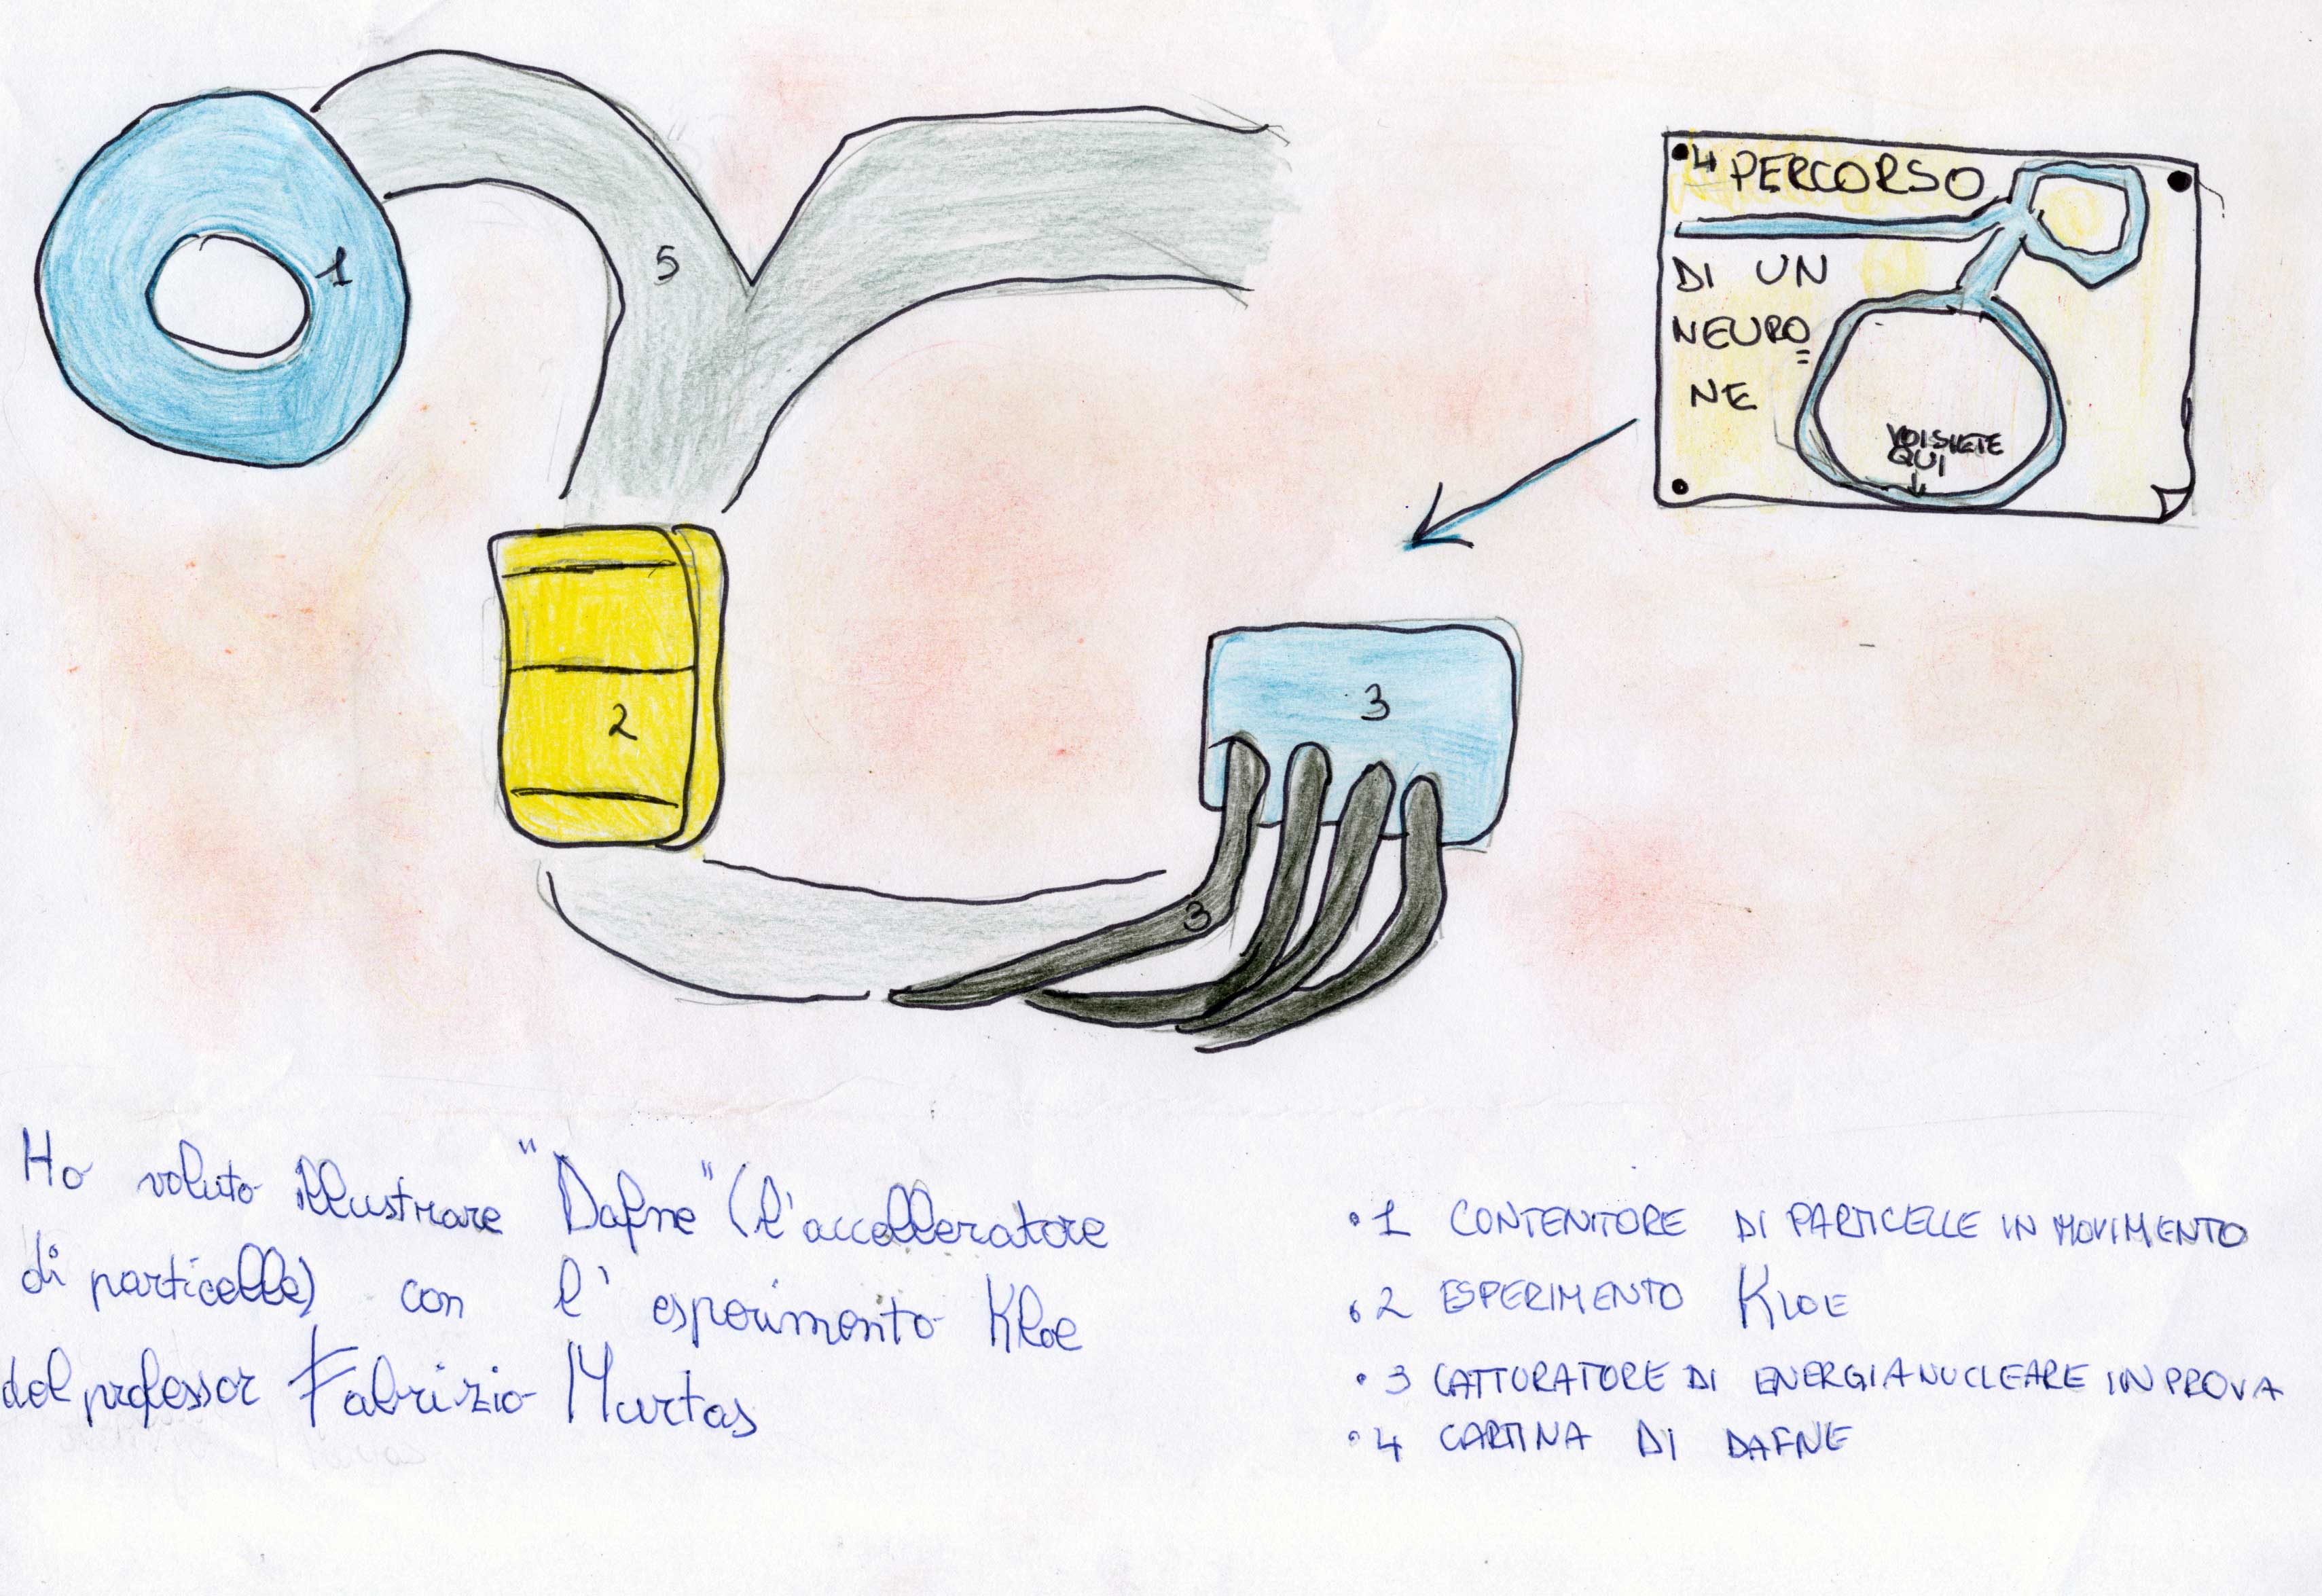 1
5
4 PERCORSO
DI UN
NEURO=
NE
VOI SIETE
QUI
2
3
3
Ho voluto illustrare "Dafne" (l'accelleratore
di particelle) con l'esperimento Kloe
del professor Fabrizio Murtas
• 1 CONTENITORE DI PARTICELLE IN MOVIMENTO
• 2 ESPERIMENTO KLOE
• 3 CATTURATORE DI ENERGIA NUCLEARE IN PROVA
• 4 CARTINA DI DAFNE